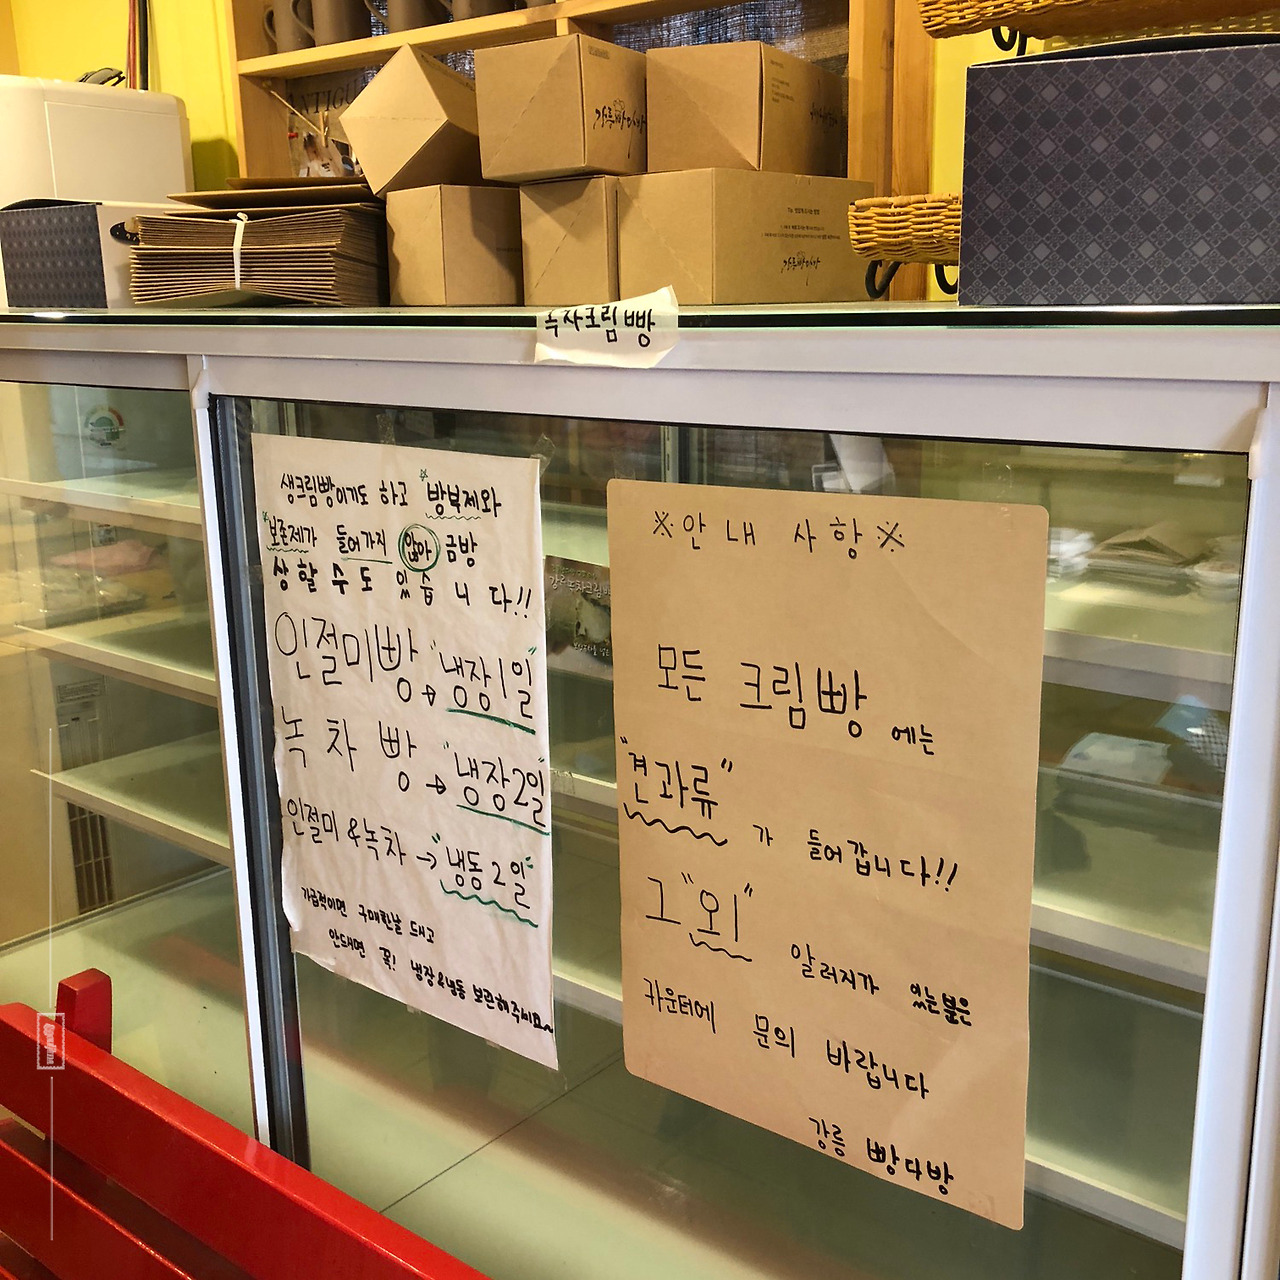 ANTIGU
강릉빵다방
강릉빵다방
녹차크림빵
생크림빵이기도 하고 방부제와
보존제가 들어가지 않아 금방
상할 수도 있습니다!!
인절미빵 → "냉장1일"
녹차빵 → "냉장2일"
인절미&녹차 → "냉동2일"
가급적이면 구매한날 드시고
안드시면 꼭! 냉장&냉동 보관해주세요~
※안내 사항※
모든 크림빵에는
"견과류"가 들어갑니다!!
그"외" 알러지가 있는분은
카운터에 문의 바랍니다
강릉 빵다방